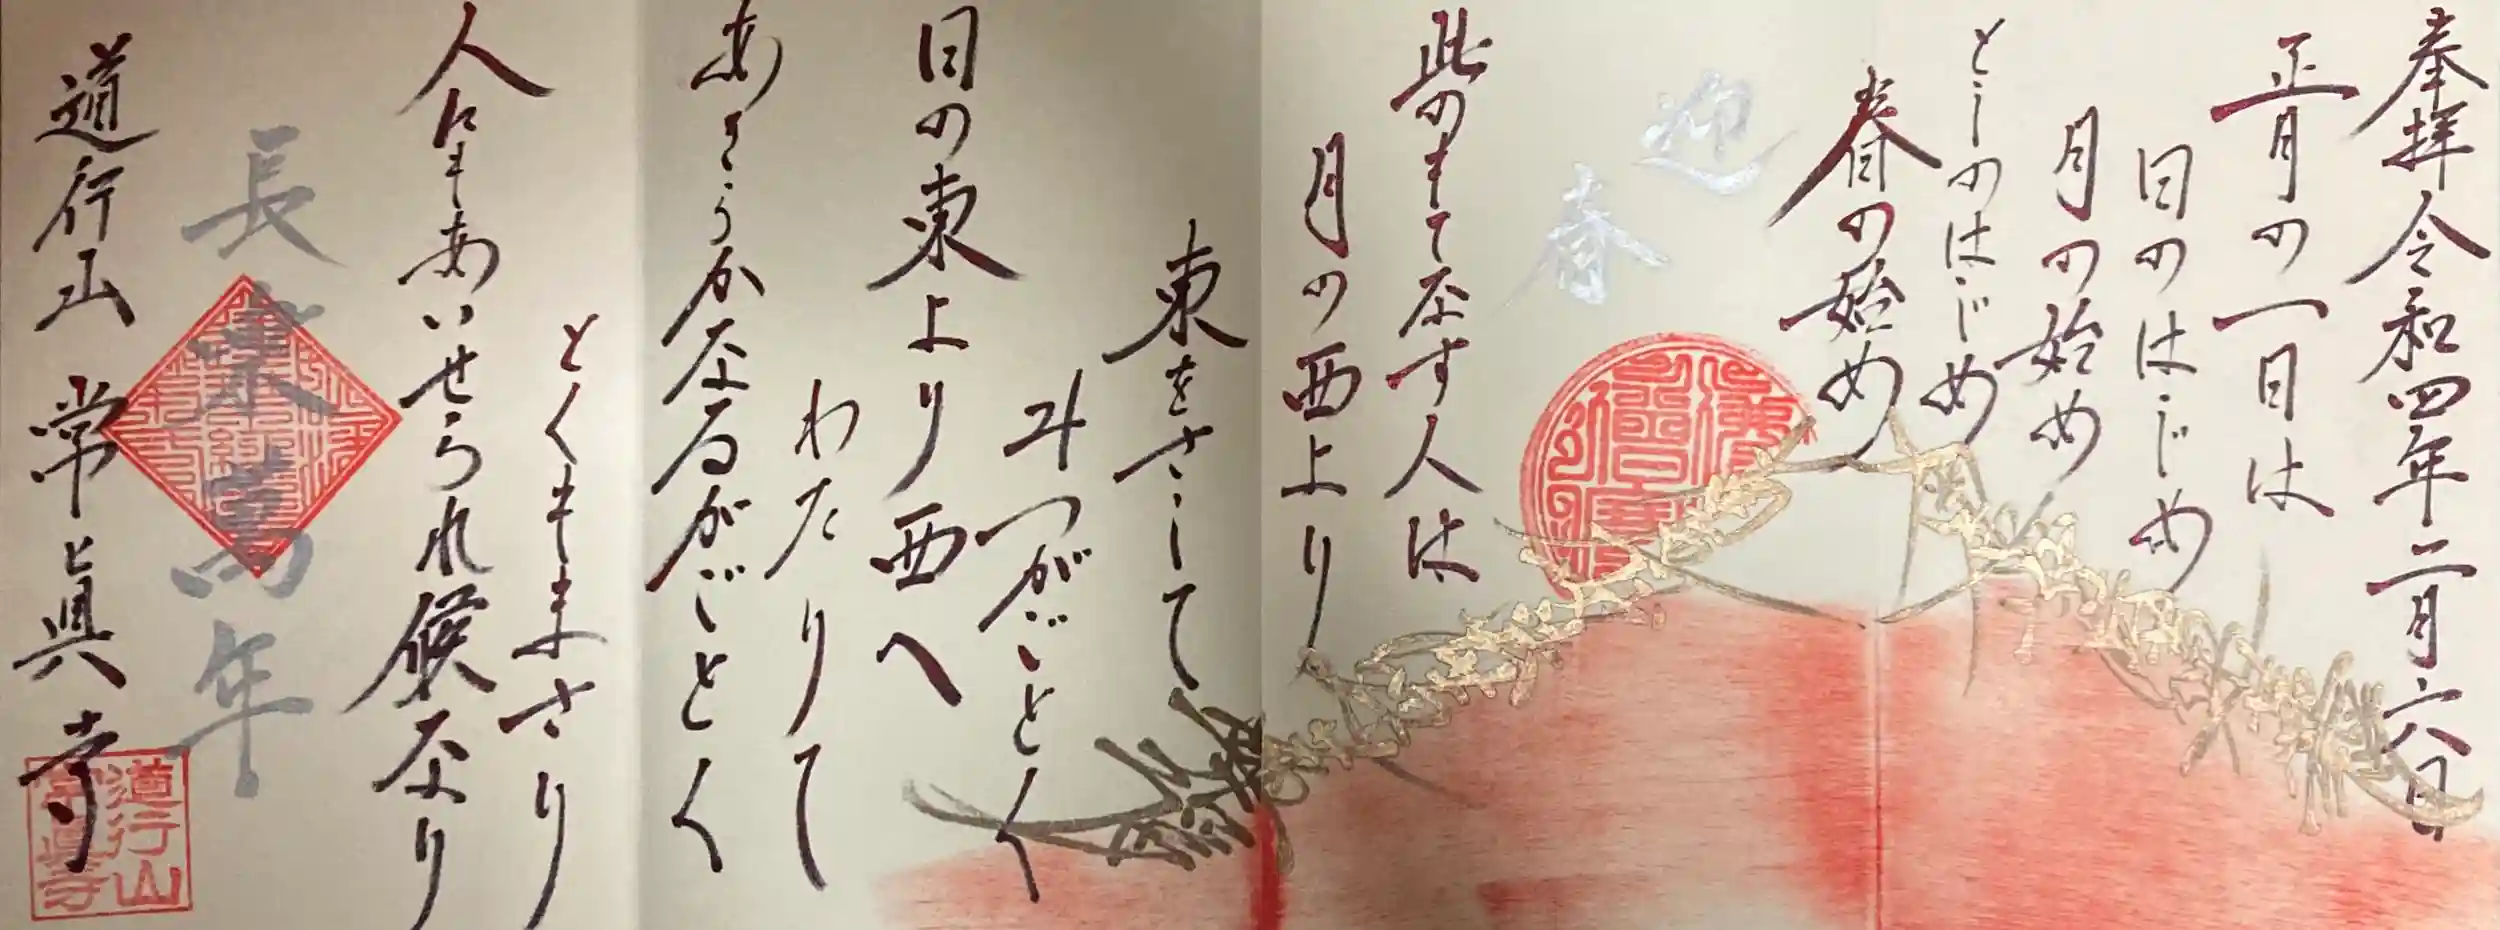 奉拝令和四年二月六日
正月の一日は
日のはじめ
月の始め
としのはじめ
春の始め
迎春
此のもてなす人は
月の西より
東をさして
みつがごとく
日の東より西へ
わたりて
あきらかなるがごとく
とくもまさり
人にもあいせられ候なり
長楽萬年
道行山 常眞寺
道行山
常眞寺